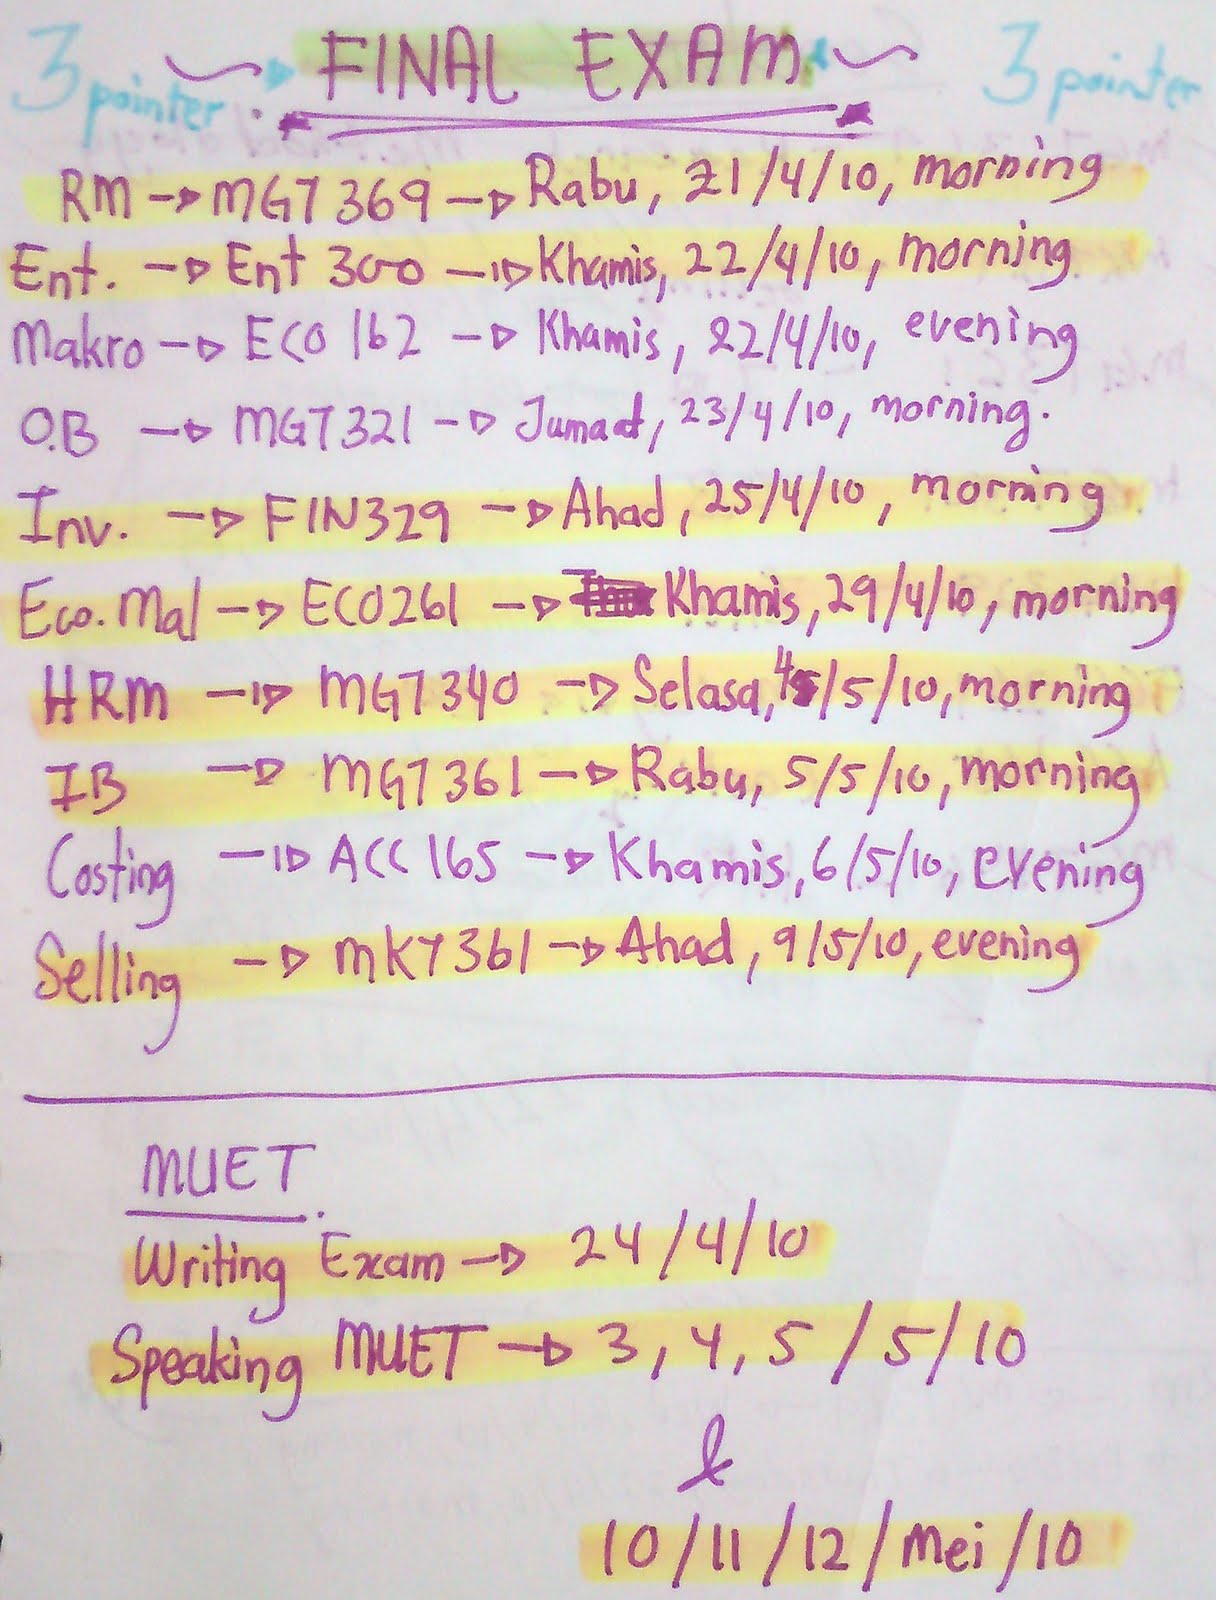 3 pointer FINAL EXAM 3 pointer
RM → MGT 369 → Rabu, 21/4/10, morning
Ent. → Ent 300 → Khamis, 22/4/10, morning
Makro → ECO 162 → Khamis, 22/4/10, evening
O.B → MGT 321 → Jumaat, 23/4/10, morning.
Inv. → FIN329 → Ahad, 25/4/10, morning
Eco. Mal → ECO261 → Khamis, 29/4/10, morning
HRM → MGT 340 → Selasa, 4/5/10, morning
IB → MGT 361 → Rabu, 5/5/10, morning
Costing → ACC 165 → Khamis, 6/5/10, evening
Selling → MKT 361 → Ahad, 9/5/10, evening
MUET
Writing Exam → 24/4/10
Speaking MUET → 3, 4, 5 / 5/10
&
10/11/12/Mei/10